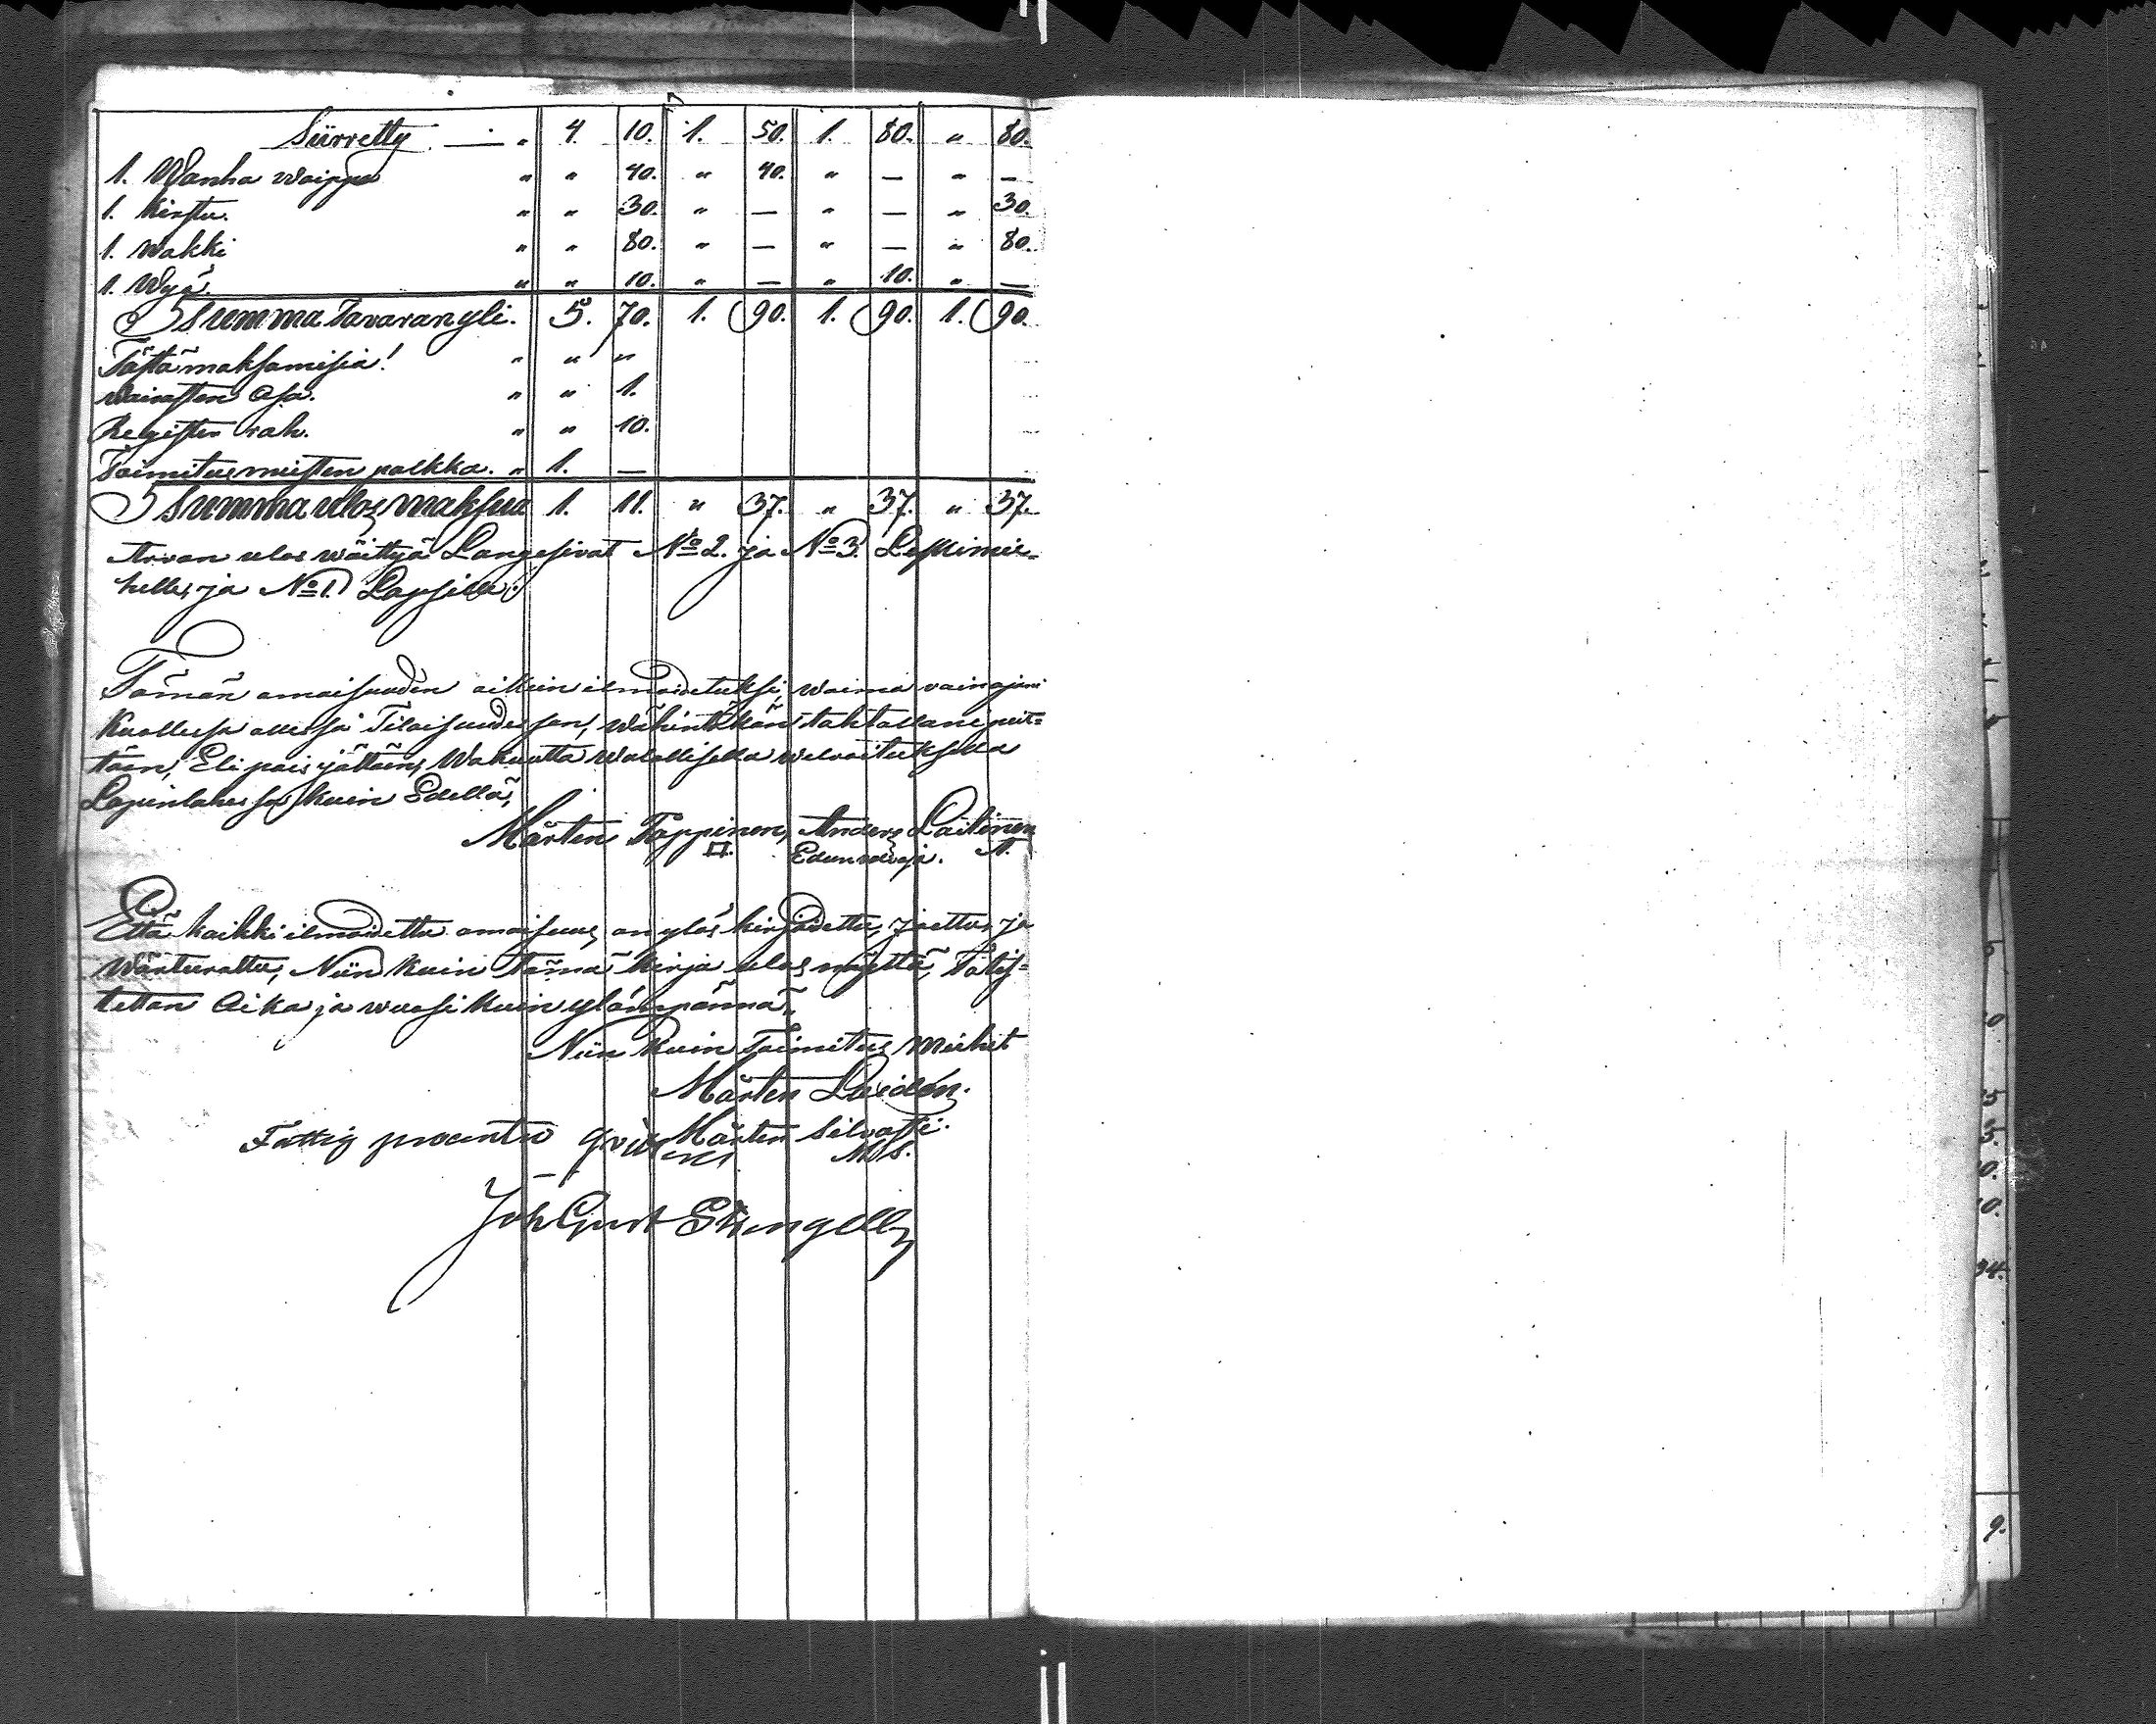 Siirretty. — " 4. 10. 1. 50. 1. 80. " 80.
1. Wanha waippa " " 40. " 40. " — " —
1. Kirstu. " " 30. " — " — " 30.
1. wakki " " 80. " — " — " 80.
1. Wyä. " " 10. " — " 10. " —
Summa Tavaran yli. 5. 70. 1. 90. 1. 90. 1. 90.
Tästä maksamisia! " " "
waivasten Osa. " " 1.
Register rah. " " 10.
Toimitusmiesten palkka. " 1. —
Summa ulos maksua 1. 11. " 37. " 37. " 37.
Arvan ulos wäittyä Langesivat No 2. ja No 3. Leskimie-
helle, ja No 1. Lapsille.
Tämän omaisuuden oikein ilmoidetuksi, waimo vainajani
Kuollessa ollessa Tilaisuudessan, wähintäkän tahtollani peit=
täin, Eli pois jättäin, Wakuutta Walallisella welvoituksella
Lapinlahessa kuin Edellä,
Mårten Toppinen, Anders Laitinen
Edunvalvoja. A.
Että kaikki ilmoidettu omaisuus, on ylös kirjoidettu, jaettu, ja
wärteerattu, Niin kuin tämä kirja ulos näyttä, Todis=
tettan Aika ja wuosi kuin ylämpännä,
Niin kuin Toimitus Miehet
Mårten Laidén.
Fattig procenten qvitteras Mårten Silvasti.
M S.
Joh Gust Stengell
9.